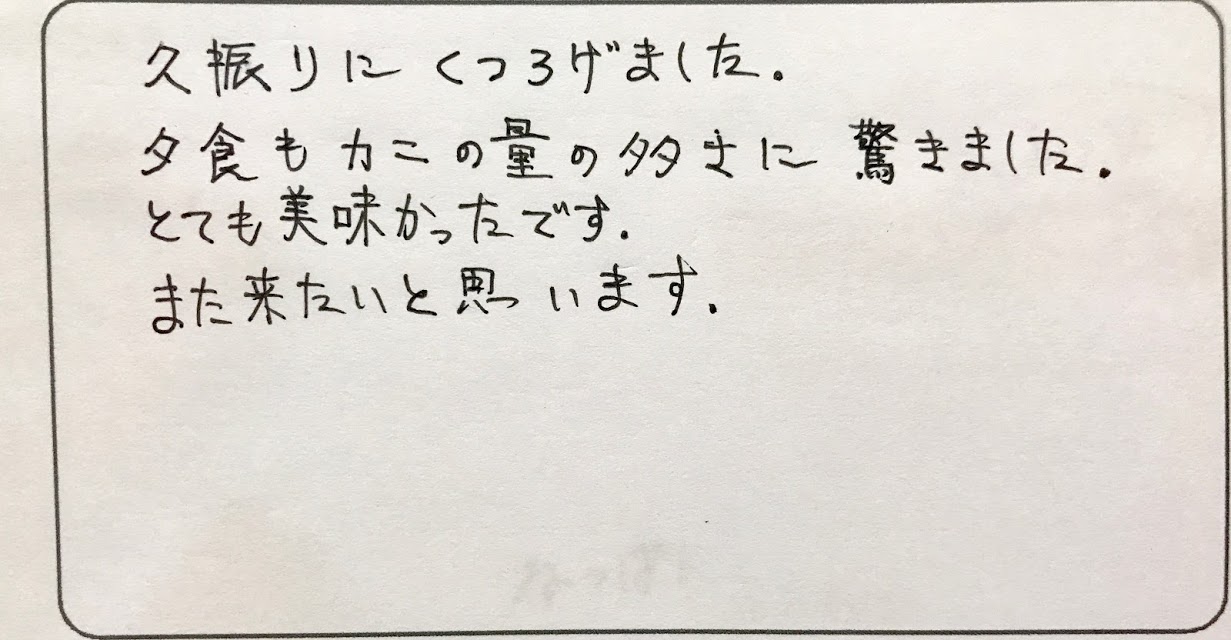 久振りにくつろげました.
夕食もカニの量の多さに驚きました.
とても美味かったです.
また来たいと思います.